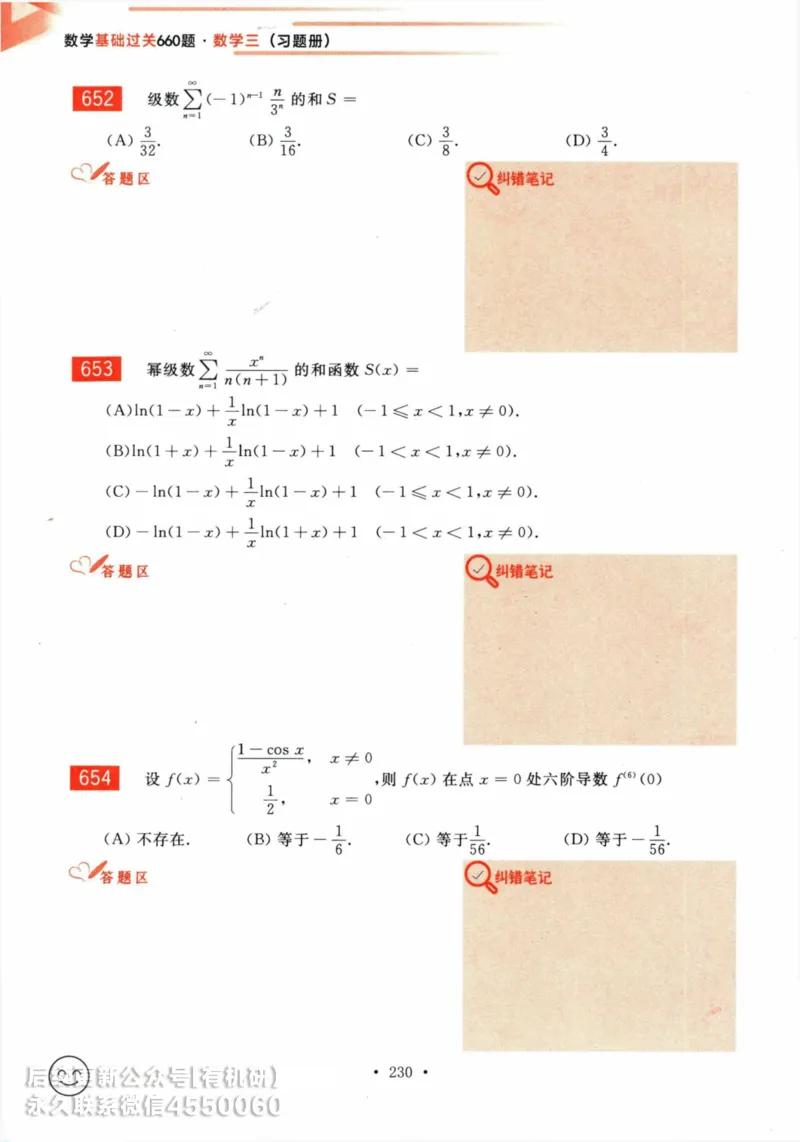 数学基础过关660题·数学三（习题册）
652 级数∑_{n=1}^{∞}(-1)^{n-1} n/3^n 的和 S =
(A) 3/32. (B) 3/16. (C) 3/8. (D) 3/4.
答题区 纠错笔记
653 幂级数∑_{n=1}^{∞} x^n/n(n+1) 的和函数 S(x) =
(A)ln(1-x)+1/x ln(1-x)+1 (-1≤x<1,x≠0).
(B)ln(1+x)+1/x ln(1-x)+1 (-1<x<1,x≠0).
(C)-ln(1-x)+1/x ln(1-x)+1 (-1≤x<1,x≠0).
(D)-ln(1-x)+1/x ln(1+x)+1 (-1<x<1,x≠0).
答题区 纠错笔记
654 设 f(x) = { 1-cos x/x^2, x≠0 1/2, x=0 ,则 f(x) 在点 x = 0 处六阶导数 f^{(6)}(0)
(A) 不存在. (B) 等于-1/6. (C) 等于1/56. (D) 等于-1/56.
答题区 纠错笔记
• 230 •
后续更新公众号[有机研]
永久联系微信4550060